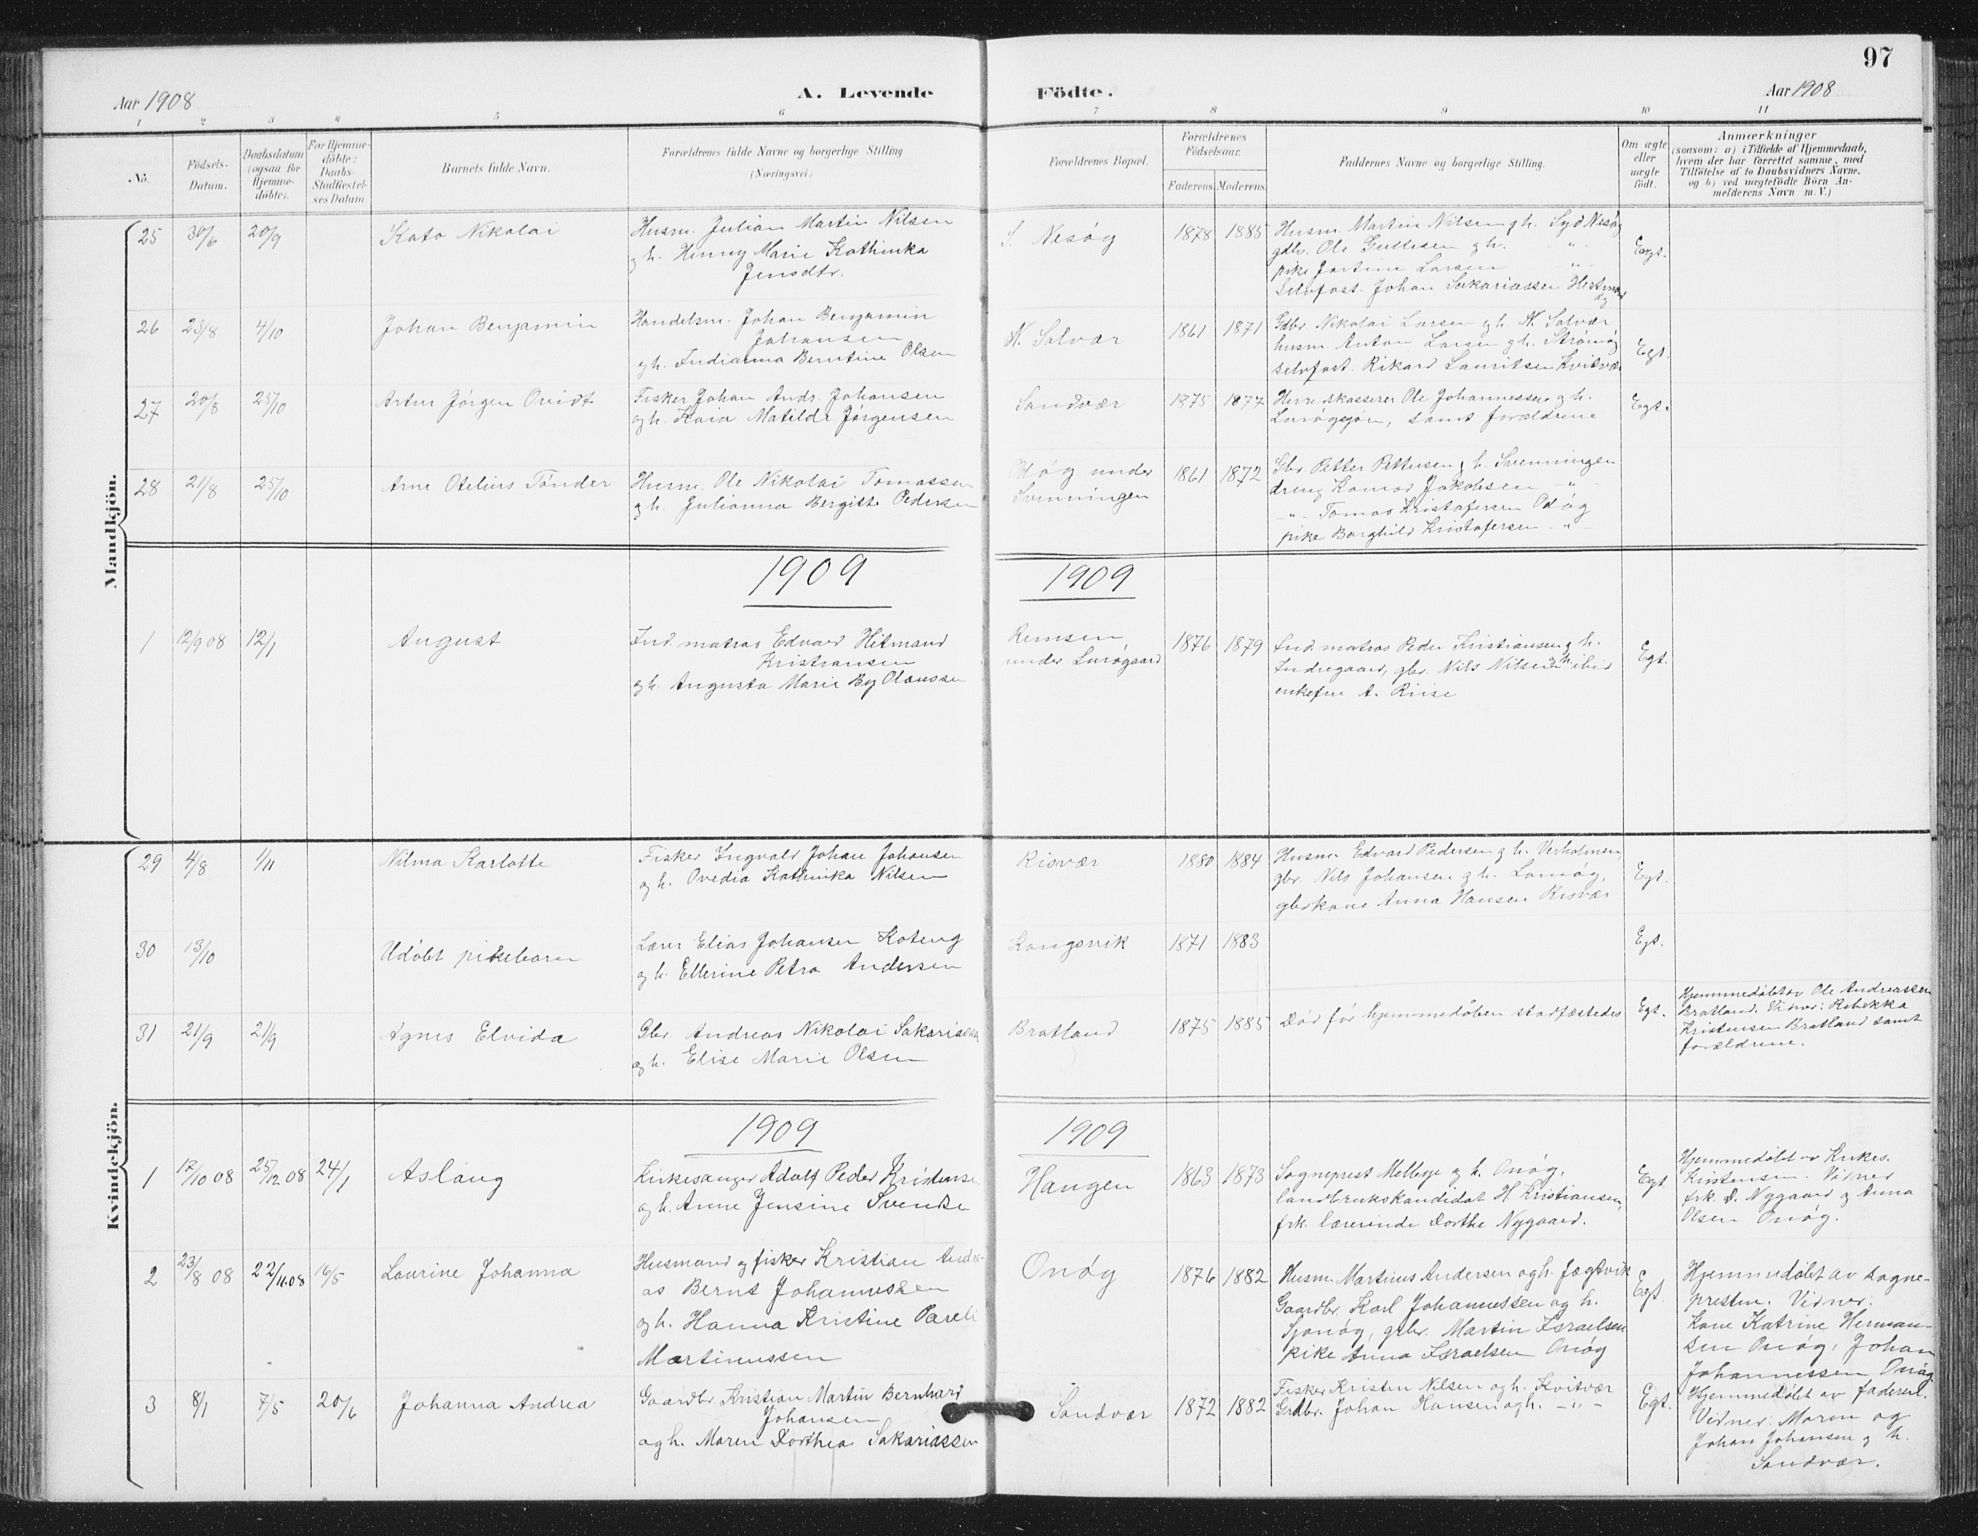 97
Aar 1908
A. Levende
Födte.
Aar 1908
1 2 3 4 5 6 7 8 9 10 11
No.
Födsels-
Datum.
Daabsdatum
(ogsaa for
Hjemme-
döbte).
For Hjemme-
döbte:
Daabs-
Stadfæstel-
ses Datum.
Barnets fulde Navn.
Forældrenes fulde Navne og borgerlige Stilling
(Næringsvei.)
Forældrenes Bopæl.
Forældrenes
Födselsaar.
Faderens. Moderens.
Faddernes Navne og borgerlige Stilling.
Om ægte
eller
uægte
födt.
Anmærkninger
(saasom: a) i Tilfælde af Hjemmedaab,
hvem der har forrettet samme, med
Tilföielse af to Daabsvidners Navne,
og b) ved uægtefödte Börn An-
melderens Navn m. V.)
Mandkjön.
25 30/6 20/9 Kato Nikolai
Husm. Julian Martin Nilsen
og h. Henny Marie Kathinka
Jensdtr.
S. Nesøy 1878 1885
Husm. Martin Nilsen og h. Syd Nesøy
gdbr. Ole Gullesen og h. -"-
pike Jortine Larsen
selvfost. Johan Sakariassen Hestmo
Eegt.
26 23/8 4/10 Johan Benjamin
Handelsm. Johan Benjamin
Johansen
og h. Indianna Berntine Olsen
N. Solvær 1861 1871
Gdbr Nikolai Larsen og h. N. Solvær
husm Anton Larsen og h. Strømøy
selvfost. Rikard Lauritsen Kvitvær
Egt.
27 20/8 25/10 Artur Jørgen Ovidt
Fisker Johan Andr. Johansen
og h. Kaia Matilde Jørgensen
Sandvær 1875 1877
Herredskasserer Ole Johannessen og h.
Lurøygjøn, samt forældrene
Egt.
28 21/8 25/10 Arne Otelius Tønder
Husm. Ole Nikolai Tomassen
og h. Julianna Bergitte Pedersen
under
Svenningen
1861 1872
Gbr Petter Pettersen og h. Svenningen
dreng Konrad Jakobsen -"-
-"- Tomas Kristofersen Odøy
pike Borghild Kristofersen -"-
1909 1909
1 12/9 08 12/1 August
Ind. matros Edvard Hitmand
Kristiansen
og h. Augusta Marie By Olaussen
Remsen
under Lurøgaard
1876 1879
Ind. matros Peder Kristiansen og h.
Indregaard, gbr. Nils Nilsen og h. ibid
enkefru A. Riise
Egt.
Kvindekjön.
29 4/8 1/11 Nilma Karlotte
Fisker Ingvald Johan Johansen
og h. Ovedia Kathinka Nilsen
Risvær 1880 1884
Husm. Edvard Pedersen og h. Verholmen,
gbr. Nils Johansen og h. Lamøy,
gbrkone Anna Hansen Risvær
Egt.
30 13/10 Udøbt pikebarn
Lærer Elias Johansen Koteng
og h. Ellerine Petra Andersen
Kongsvik 1871 1883
Egt.
31 21/9 21/9 Agnes Elvida
Gbr Andreas Nikolai Sakariassen
og h. Elise Marie Olsen
Bratland 1875 1885
Død før hjemmedøben stadfæstedes
Egt.
Hjemmedøbt av Ole Andreassen
Bratland. Vidner: Rebekka
Kristensen Bratland samt
forældrene.
1909 1909
1 17/10 08 25/12 08 24/1 Aslaug
Kirkesanger Adolf Peder Kristensen
og h. Anne Jensine Svendse
Haugen 1863 1873
Sogneprest Mellbye og h. Onøy,
landbrukskandidat H. Kristiansen,
frk. lærerinde Dorthe Nygaard.
Egt
Hjemmedøbt av Kirkes.
Kristensen. Vidner
frk. D. Nygaard og Anna
Olsen Onøy.
2 23/8 08 22/11 08 16/5 Laurine Johanna
Husmand og fisker Kristian Andre-
as Bernt Johannessen
og h. Hanna Kristine Pareli
Martinussen
Onøy 1876 1882
Husm Martinus Andersen og h. Jægtvik
Gaardbr. Karl Johannessen og h.
Sjonøy, gbr. Martin Israelsen
pike Anna Israelsen Onøy
Egt.
Hjemmedøbt av sogne-
presten. Vidner:
Kone Katrine Herman-
sen Onøy, Johan
Johannessen, Onøy
3 8/1 7/5 20/6 Johanna Andrea
Gaardbr. Kristian Martin Bernhard
Johansen
og h. Maren Dorthea Sakariassen
Sandvær 1872 1882
Fisker Kristen Nilsen og h. Kvitvær
Grdbr. Johan Hansen og h. -"-
Egt.
Hjemmedøbt av faderen.
Vidner: Maren og
Johan Johansen og h.
Sandvær.